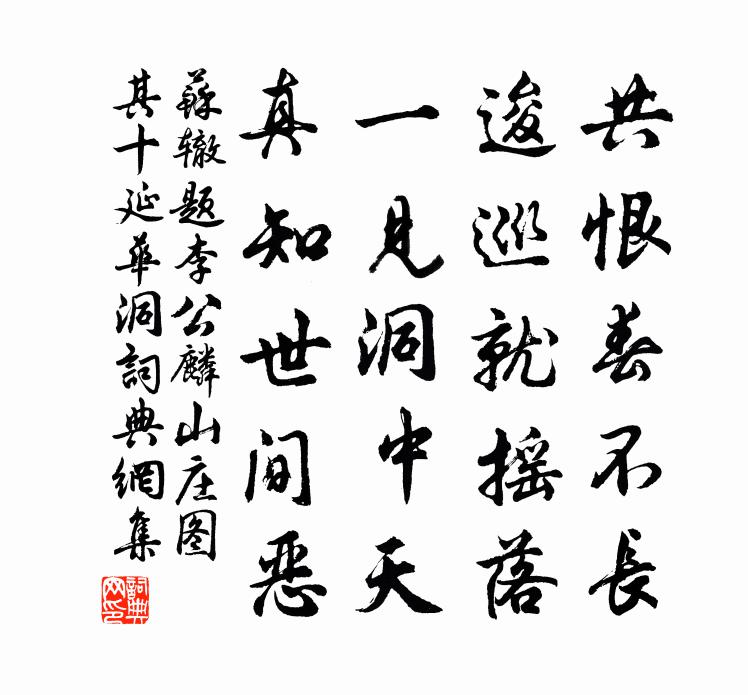 共恨春不長
逡巡就摇落
一見洞中天
真知世间恶
蘇辙题李公麟山庄图
其十延華洞詞典網集
詞典網印